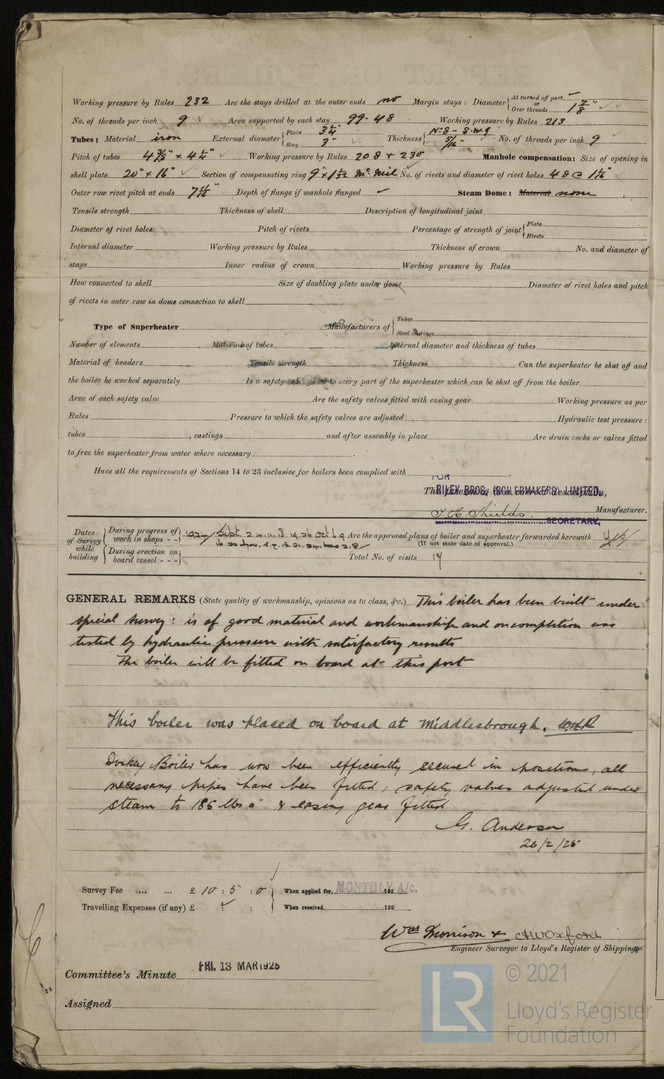 Working pressure by Rules 232 Are the stays drilled at the outer ends no Margin stays: Diameter { At turned off part, or Over threads 1 7/8"
No. of threads per inch 9 Area supported by each stay 99.48 Working pressure by Rules 213
Tubes: Material iron External diameter { Plate 3 1/4 Stay 3" Thickness { No 8 - S.W.G 5/16" No. of threads per inch 9
Pitch of tubes 4 3/8" x 4 1/4" Working pressure by Rules 208 & 230 Manhole compensation: Size of opening in
shell plate 20" x 16" Section of compensating ring No. of rivets and diameter of rivet holes 48 @
Outer row rivet pitch at ends 7 1/2" Depth of flange if manhole flanged Steam Dome: Material none
Tensile strength Thickness of shell Description of longitudinal joint
Diameter of rivet holes Pitch of rivets Percentage of strength of joint { Plate Rivets
Internal diameter Working pressure by Rules Thickness of crown No. and diameter of
stays Inner radius of crown Working pressure by Rules
How connected to shell Size of doubling plate under dome Diameter of rivet holes and pitch
of rivets in outer row in dome connection to shell
Type of Superheater Manufacturers of { Tubes Steel castings
Number of elements Material of tubes Internal diameter and thickness of tubes
Material of headers Tensile strength Thickness Can the superheater be shut off and
the boiler be worked separately Is a safety valve fitted to every part of the superheater which can be shut off from the boiler
Area of each safety valve Are the safety valves fitted with easing gear Working pressure as per
Rules Pressure to which the safety valves are adjusted Hydraulic test pressure:
tubes , castings and after assembly in place Are drain cocks or valves fitted
to free the superheater from water where necessary
Have all the requirements of Sections 14 to 23 inclusive for boilers been complied with
FOR
RILEY BROS. (BOILERMAKERS) LIMITED,
The foregoing is a correct description,
Shields Manufacturer.
SECRETARY,
Dates of Survey while building { During progress of work in shops - - 1924 Sept
During erection on board vessel - - -
Are the approved plans of boiler and superheater forwarded herewith
(If not state date of approval.)
Total No. of visits 14
GENERAL REMARKS (State quality of workmanship, opinions as to class, &c.) This boiler has been built under
special survey: is of good material and workmanship and on completion was
tested by hydraulic pressure with satisfactory results
The boiler will be fitted on board at this port
This boiler was placed on board at Middlesbrough.
Donkey Boiler has now been efficiently secured in position, all
necessary pipes have been fitted, safety valves adjusted under
steam to 185 lbs □" & easing gear fitted
G. Anderson
26/2/25
Survey Fee ... ... £ 10 : 5 : 0 When applied for, MONTHLY A/c. 192
Travelling Expenses (if any) £ : : When received, 192
Wm Morrison & A W Oxford
Engineer Surveyor to Lloyd's Register of Shipping
Committee's Minute FRI. 13 MAR 1925
Assigned
LR © 2021
Lloyd's Register
Foundation